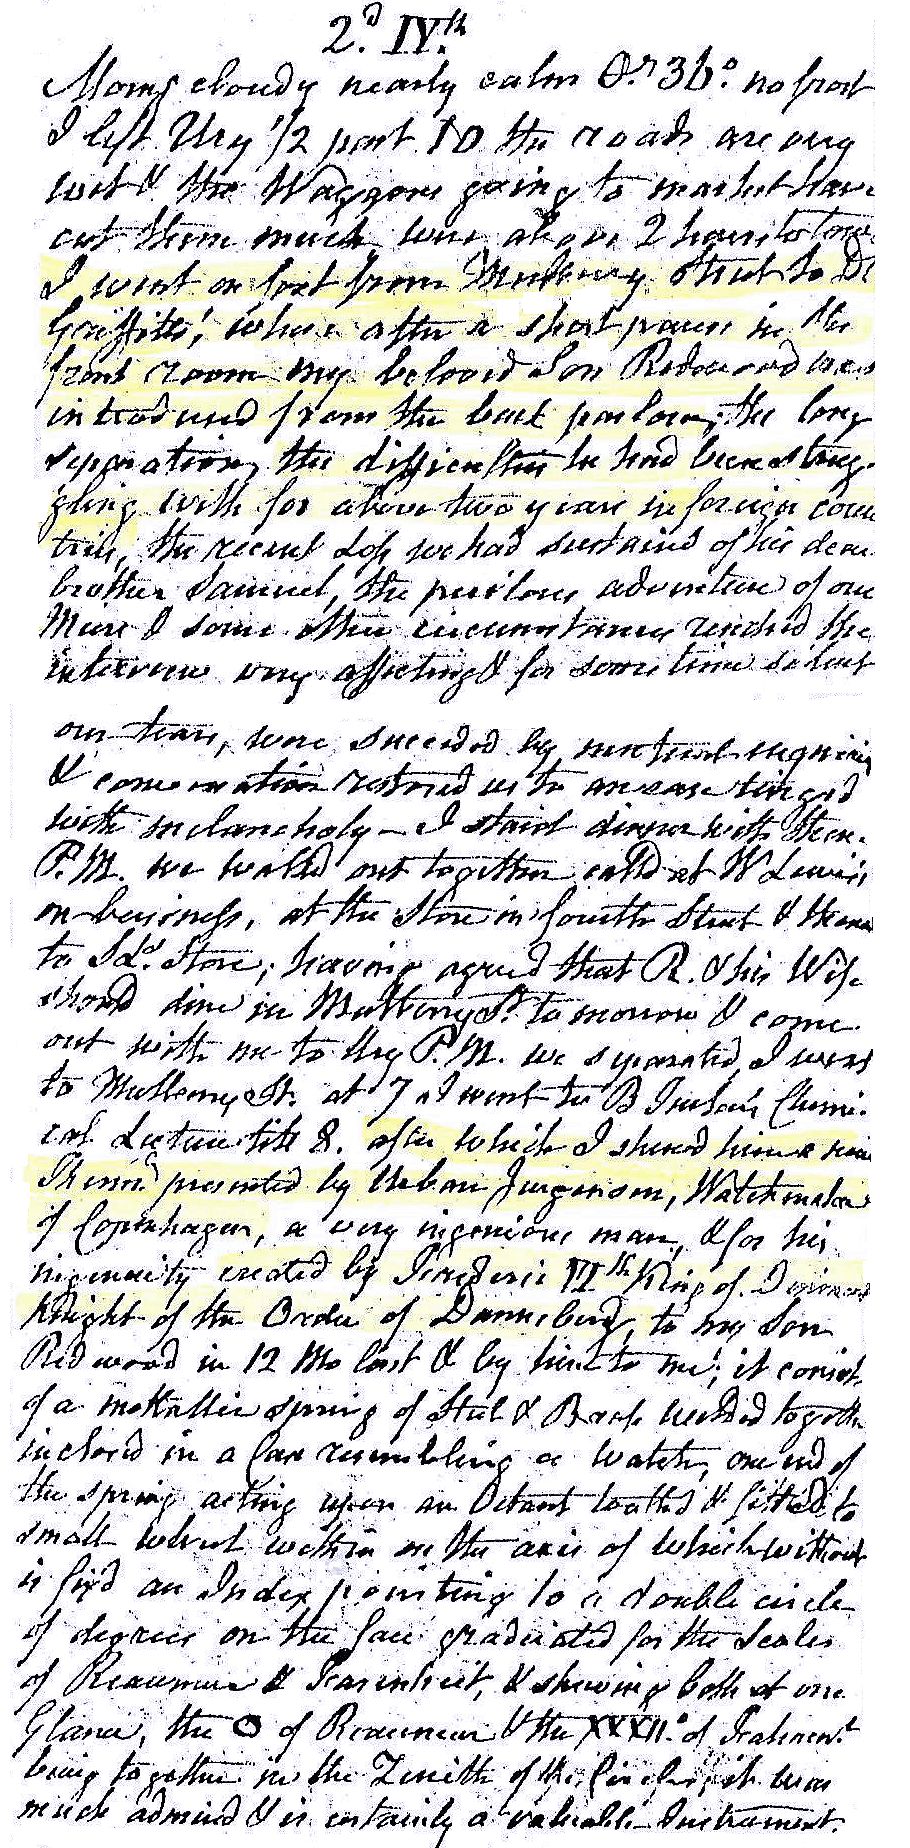 2.d IV.th
Morng cloudy nearly calm Or. 36.° no frost
I left Ury 1/2 past 10 the roads are very
wet & the Waggons going to market have
cut them much, were above 2 hours to town
I went on foot from Mulberry Street to Dr
Griffitts', where after a short pause in the
front room my beloved Son Redwood was
introduced from the back parlour, the long
separation, the difficulties he had been strug-
gling with for above two years in foreign coun
tries, the recent loss we had sustained of his dear
brother Samuel, the perilous adventure of our
& some other circumstances rendered the
interview very affecting & for some time silent
our tears, were succeeded by mutual inquiries
& conversation restored us to an ease tinged
with melancholy – I staid dinner with them.
P.M. we walked out together called at W Lewis's
on business, at the Store in fourth Street & thence
to Store, having agreed that R. & his Wife
should dine in Mulberry St. to morrow & come
out with me to Ury P.M. we separated, I went
to Mulberry St. at 7 I went to B Chemi-
cal Lecture till 8. after which I shewed him a
Thermr. presented by Urban Jurgenson, Watchmaker
of Copenhagen, a very ingenious man, & for his
ingenuity created by Frederic VI.th King of Denmark
Knight of the Order of Dannebrog, to my Son
Redwood in 12 Mo last & by him to me; it consists
of a mettallic spring of Steel & Brass welded together
inclosed in a Case resembling a watch, one end of
the spring acting upon an Octant toothed & fitted to
small wheel within on the axis of which without
is fix'd an Index pointing to a double circle
of degrees on the face graduated for the Scales
of Reaumur & Farenheit, & shewing both at one
Glance, the O of Reaumur & the XXXII.° of Fahrent.
being together in the Zenith of the Circle, it was
much admired & is certainly a valuable Instrument.